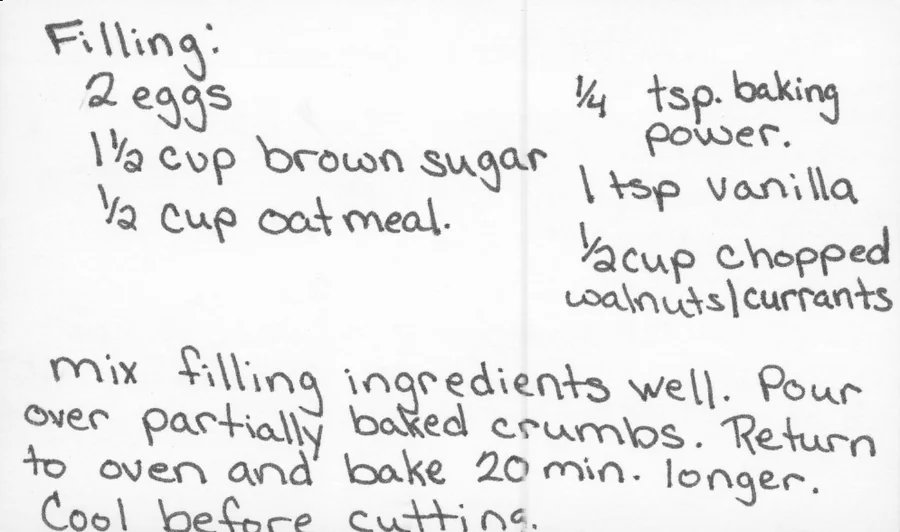 Filling:
2 eggs
1 1/2 cup brown sugar
1/2 cup oatmeal.
1/4 tsp. baking
power.
1 tsp vanilla
1/2 cup chopped
walnuts/currants
mix filling ingredients well. Pour
over partially baked crumbs. Return
to oven and bake 20 min. longer.
Cool before cutting.